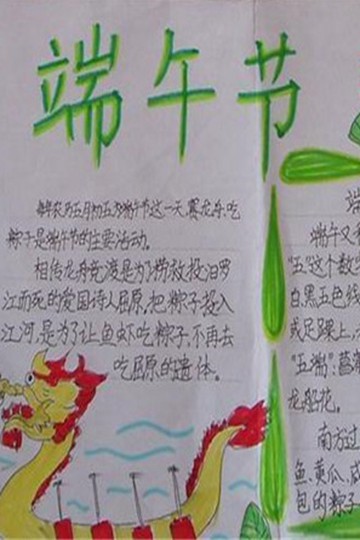 端午节
每年农历五月初五为端午节这一天,赛龙舟,吃
粽子是端午节的主要活动。
相传龙舟竞渡是为了捞救投汨罗
江而死的爱国诗人屈原,把粽子投入
江河,是为了让鱼虾吃粽子,不再去
吃屈原的遗体。
端
端午又
"五"这个数
白黑五色线
或足踝上,
"五端":菖
龙船花。
南方过
鱼、黄瓜、咸
包的粽子